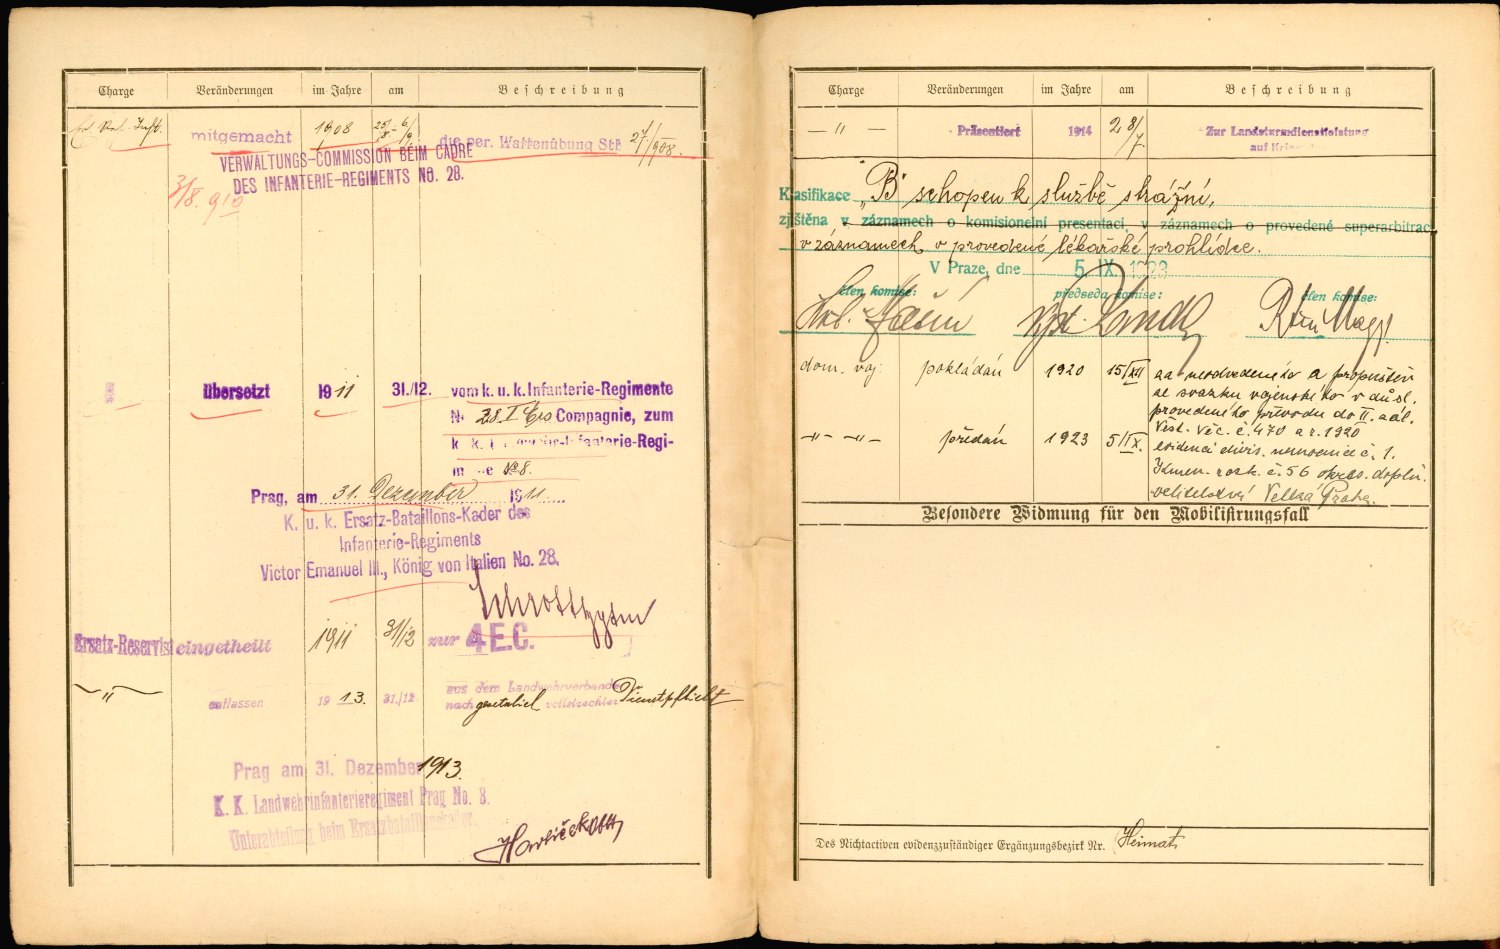 Charge Veränderungen im Jahre am Beschreibung
mitgemacht 1908 25/8 - 6/9 die per. Waffenübung Stb
VERWALTUNGS-COMMISSION BEIM CADRE
DES INFANTERIE-REGIMENTS NO. 28.
übersetzt 1911 31./12. vom k. u. k. Infanterie-Regimente
28. I Ers Compagnie, zum
k. k. Infanterie-Regi-
No 8.
Prag, am 31. Dezember 1911
K. u. k. Ersatz-Bataillons-Kader des
Infanterie-Regiments
Victor Emanuel III., König von Italien No. 28.
Ersatz-Reservist eingetheilt 1911 31/12 zur 4 E.C.
— " — entlassen 1913. 31./12 aus dem Landwehrverbande
nach gesetzlich vollstreckter Dienstpflicht
Prag am 31. Dezember 1913.
K. K. Landwehrinfanterieregiment Prag No. 8.
Unterabteilung beim Ersatzbataillonskader.
Charge Veränderungen im Jahre am Beschreibung
— " — Präsentiert 1914 28/7. Zur Landsturmdienstleistung
auf Kriegs
Klasifikace „B" schopen k službě strážní,
zjištěna v záznamech o komisionelní presentaci, v záznamech o provedené superarbitraci
v záznamech o provedené lékařské prohlídce.
V Praze, dne 5 IX. 1923
člen komise: předseda komise: člen komise:
dom. voj. pokládán 1920 15/XII za neodvedeného a propuštěn
ze svazku vojenského v důsl.
provedeného převodu do II. zál.
Věst. věc. č. 470 z r. 1920
—"— —"— předán 1923 5/IX. evidenci divis. nemocnice č. 1.
Kmen. rozk. č. 56 okres. doplň.
velitelství Velká Praha.
Besondere Widmung für den Mobilisirungsfall
Des Nichtactiven evidenzzuständiger Ergänzungsbezirk Nr. Heimat